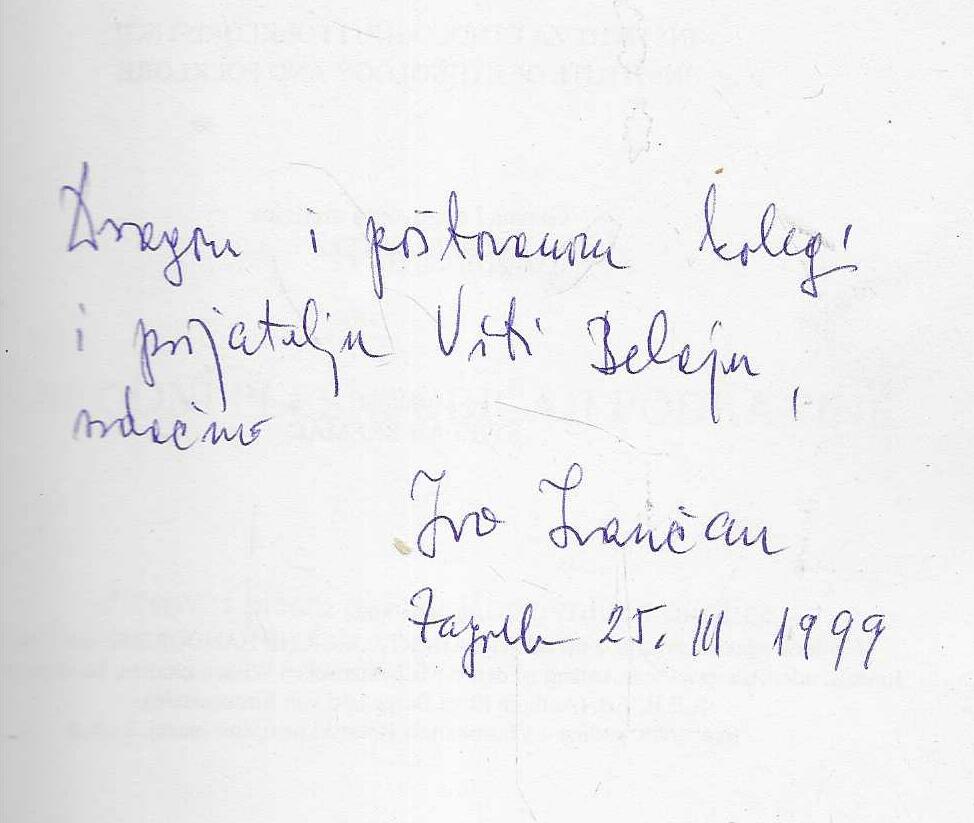 Dragom i poštovanom kolegi
i prijatelju Viti Belaju,
srdačno
Ivo Ivančan
Zagreb 25. III 1999